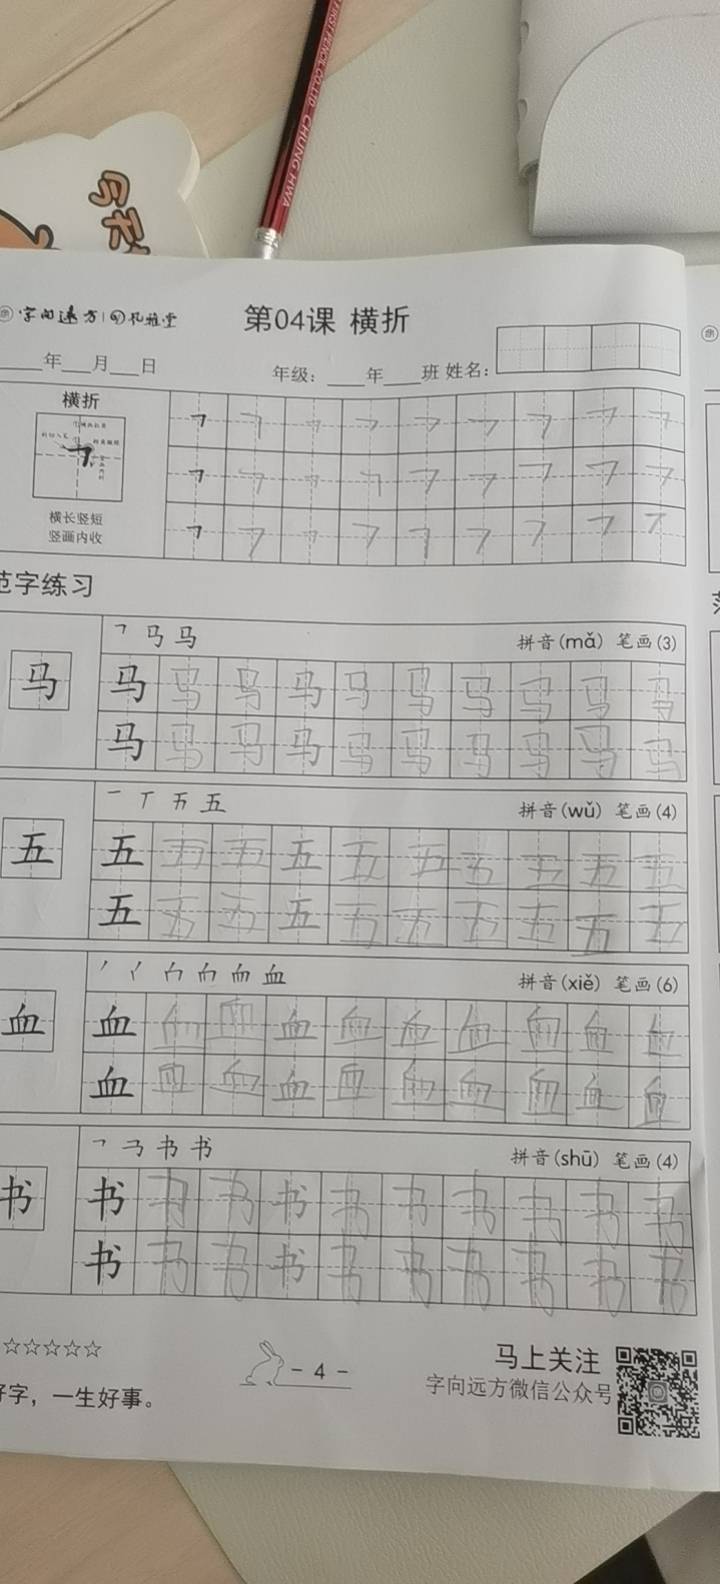 CHUNG HWA
字向远方
第04课 横折
年 月 日
年级: 年 班 姓名:
横折
横长竖短
竖画内收
范字练习
㇕ 马 马
拼音(mǎ) 笔画(3)
马 马 马 马 马 马 马 马 马 马 马
马 马 马 马 马 马 马 马 马 马
一 丅 五 五
拼音(wǔ) 笔画(4)
五 五 五 五 五 五 五 五 五 五 五
五 五 五 五 五 五 五 五 五 五
血
拼音(xiě) 笔画(6)
血 血 血 血 血 血 血 血 血 血 血
血 血 血 血 血 血 血 血 血 血
书 书
拼音(shū) 笔画(4)
书 书 书 书 书 书 书 书 书 书 书
书 书 书 书 书 书 书 书 书 书
☆☆☆☆☆
- 4 -
马上关注
字向远方微信公众号
好字，一生好事。